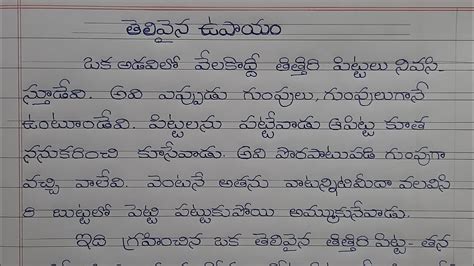 తెలివైన ఉపాయం
ఒక అడవిలో వేలకొద్దీ తిత్తిరి పిట్టలు నివసి-
స్తూడేవి. అవి ఎప్పుడు గుంపులు, గుంపులుగానే
ఉంటూండేవి. పిట్టలను పట్టేవాడు ఆపిట్ట కూత
ననుకరించి కూసేవాడు. అవి పొరపాటుపడి గుంపుగా
వచ్చి వాలేవి. వెంటనే అతను వాటన్నిటిమీదా వలవిసి
రి బుట్టలో పెట్టి పట్టుకుపోయి అమ్ముకునేవాడు.
ఇది గ్రహించిన ఒక తెలివైన తిత్తిరి పిట్ట - తన